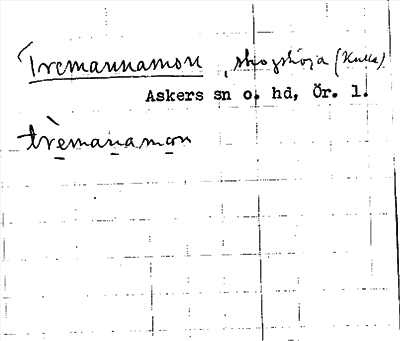 Tremannamon, skogshöja (Kulle)
Askers sn o. hd, Ör. l.
trèmanamon